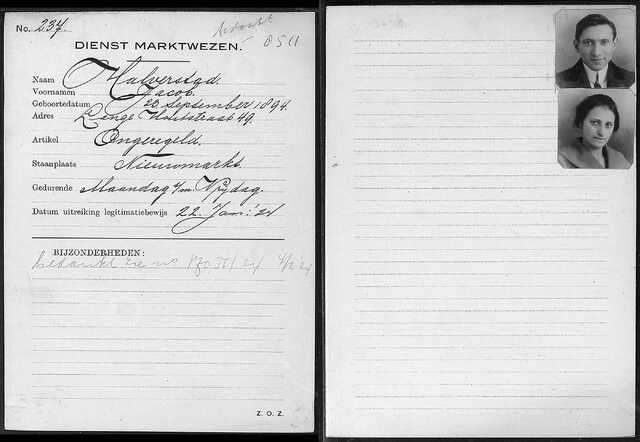 No. 237.
DIENST MARKTWEZEN.
Naam Halverstad.
Voornamen Jacob.
Geboortedatum 20 September 1894.
Adres Lange Houtstraat 49.
Artikel Ongeregeld.
Staanplaats Nieuwmarkt
Gedurende Maandag t/m Vrijdag.
Datum uitreiking legitimatiebewijs 22 Jan: '24
BIJZONDERHEDEN:
bedankt zie no
Z. O. Z.